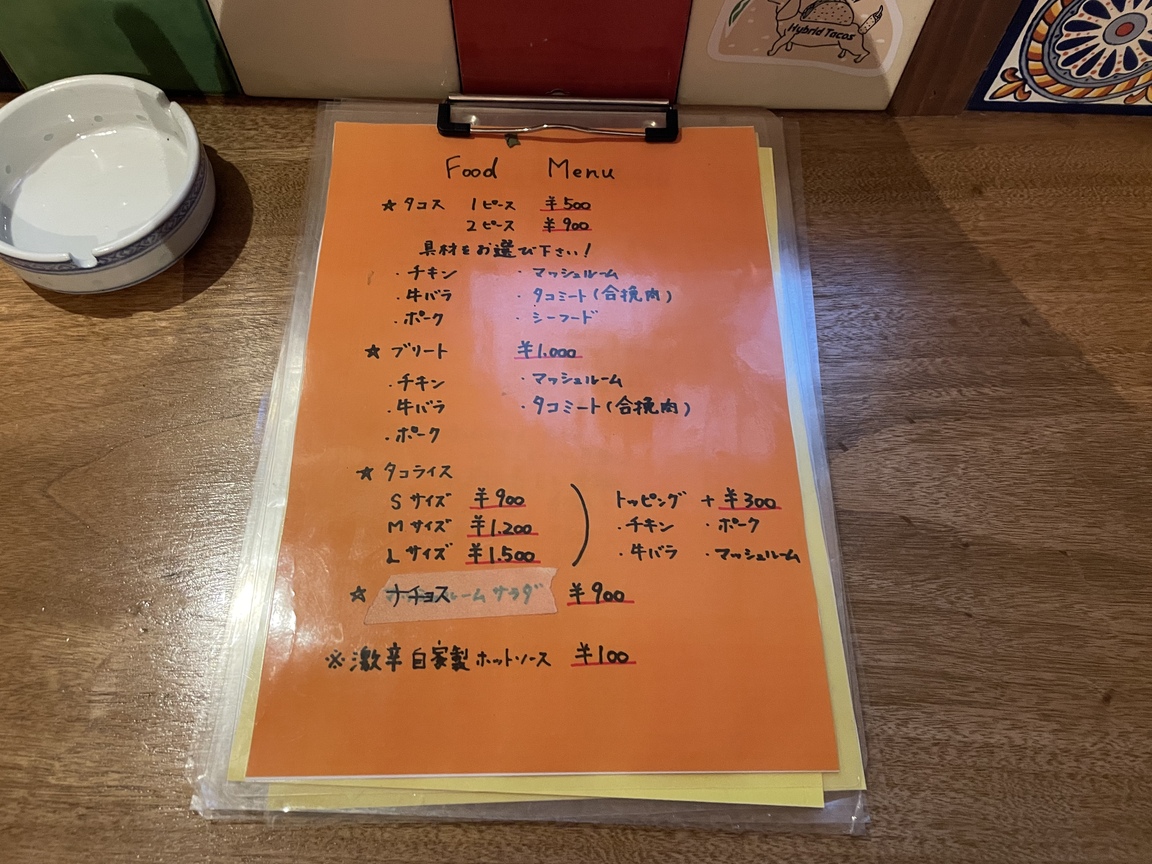 Hybrid Tacos
Food Menu
☆ タコス 1ピース ¥500
2ピース ¥900
具材をお選び下さい！
・チキン ・マッシュルーム
・牛バラ ・タコミート(合挽肉)
・ポーク ・シーフード
☆ ブリート ¥1.000
・チキン ・マッシュルーム
・牛バラ ・タコミート(合挽肉)
・ポーク
☆ タコライス
Sサイズ ¥900 ) トッピング +¥300
Mサイズ ¥1.200 ・チキン ・ポーク
Lサイズ ¥1.500 ・牛バラ ・マッシュルーム
☆ ナチョス ルーム サラダ ¥900
※激辛自家製ホットソース ¥100